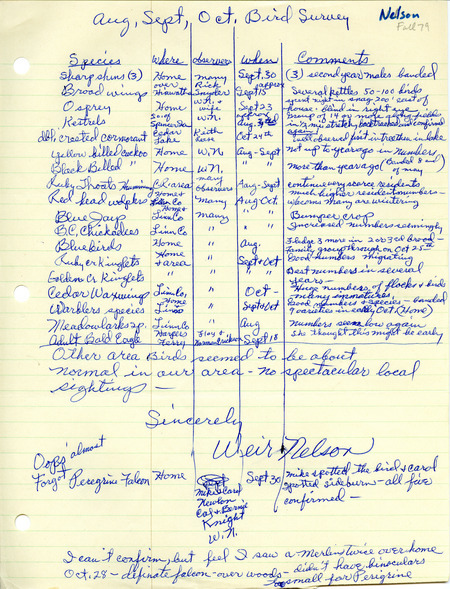 Aug, Sept, Oct. Bird Survey
Nelson
Fall 79
Species Where observer When Comments
Sharpshins (3) Home many Sept. 30 (3) second year males banded
Broadwings over Hiawatha Rick Snyder Sept 15 Several kettles 50-100 birds
Osprey Home W.N. + wife Sept 23 spent night in snag 200' east of house - blind in right eye
Kestrels Aug group of 14 or more
dbl. crested cormorant Cedar Lake Oct 24th just in trees in lake
Yellow billed cuckoo Home W.N. Aug-Sept Not up to years ago in numbers
Black Billed " Home W.N. " more than years ago (Banded 8 of many)
Ruby Throats Humming Cl area many observers Aug-Sept continue very scarce residents
Red head wdpkr Home + Linn Co many Aug Oct much higher resident numbers - wacoms many are wintering
Blue Jays Home + Linn Co many " Bumper crop
B.C. Chickadees Linn Co " " Increased numbers seemingly
Bluebirds Home " Aug. Fledged 3 more in 2nd 3rd brood - Family group through on Oct 25th
Ruby cr Kinglets Home + area " Sept + Oct Good numbers migrating
Golden Cr Kinglets " " " Best numbers in several years -
Cedar Waxwings Linn Co " Oct - Huge numbers of flocks + birds many immatures
Warblers species Home Linn " Sept + Oct Good numbers + species - banded 9 varieties in early Oct (Home)
Meadowlarks sp. Linn Co " Aug Numbers seem low again
Adult Bald Eagle Harpers Ferry Norma Erickson Sept 18 She thought this might be early
Other area Birds seemed to be about
normal in our area - no spectacular local
sightings -
Sincerely
Weir Nelson
Oops' almost
Forgot Peregrin Falcon Home Mike + Carol Newlon Cal + Bernie Knight W.N. Sept 30 mike spotted the bird + carol
spotted sideburn - all five
confirmed -
I can't confirm, but feel I saw a Merlin twice over home
Oct. 28 - definate falcon - over woods - didn't have binoculars
too small for Peregrine